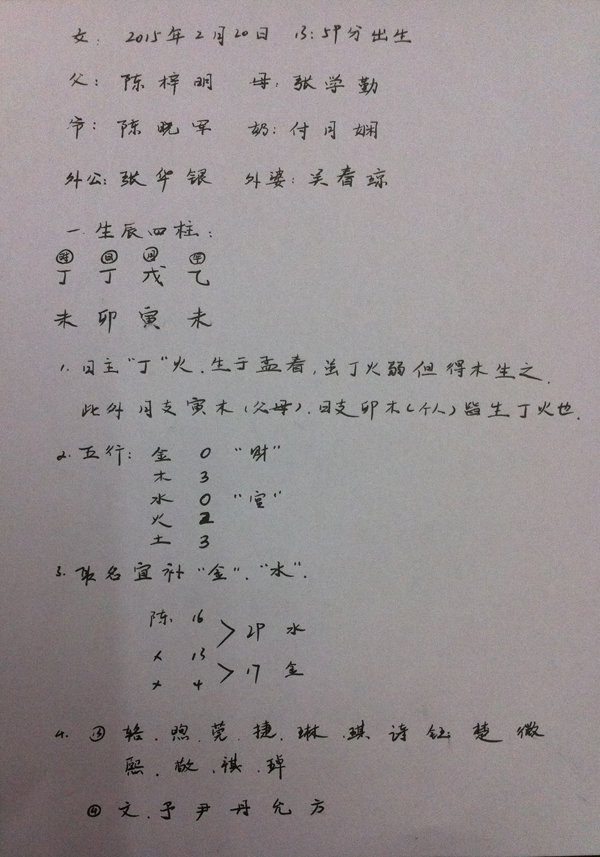 女. 2015年2月20日 13:59分出生
父: 陈梓明 母: 张学勤
爷: 陈晓军 奶: 付月娴
外公: 张华银 外婆: 吴春琼
一. 生辰四柱:
时 日 月 年
丁 丁 戊 乙
未 卯 寅 未
1. 日主"丁"火. 生于孟春, 虽丁火弱但得木生之.
此外月支寅木(父母). 日支卯木(个人)皆生丁火也.
2. 五行: 金 0 "财"
木 3
水 0 "官"
火 2
土 3
3. 取名宜补"金"."水".
陈 16
> 29 水
× 13
> 17 金
× 4
4. ⑬ 辂. 煦. 莞. 捷. 琳. 琪 诗 钰 楚 微
熙. 敬. 祺. 琸
④ 文. 予 尹 丹 允 方